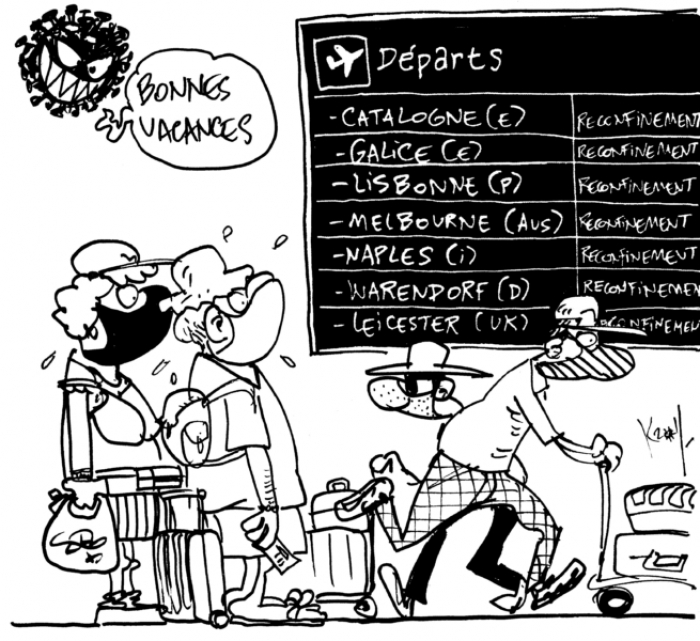 BONNES
VACANCES
Départs
- CATALOGNE (E) RECONFINEMENT
- GALICE (E) RECONFINEMENT
- LISBONNE (P) RECONFINEMENT
- MELBOURNE (AUS) RECONFINEMENT
- NAPLES (i) RECONFINEMENT
- WARENDORF (D) RECONFINEMEN
- LEICESTER (UK) RECONFINEMEN